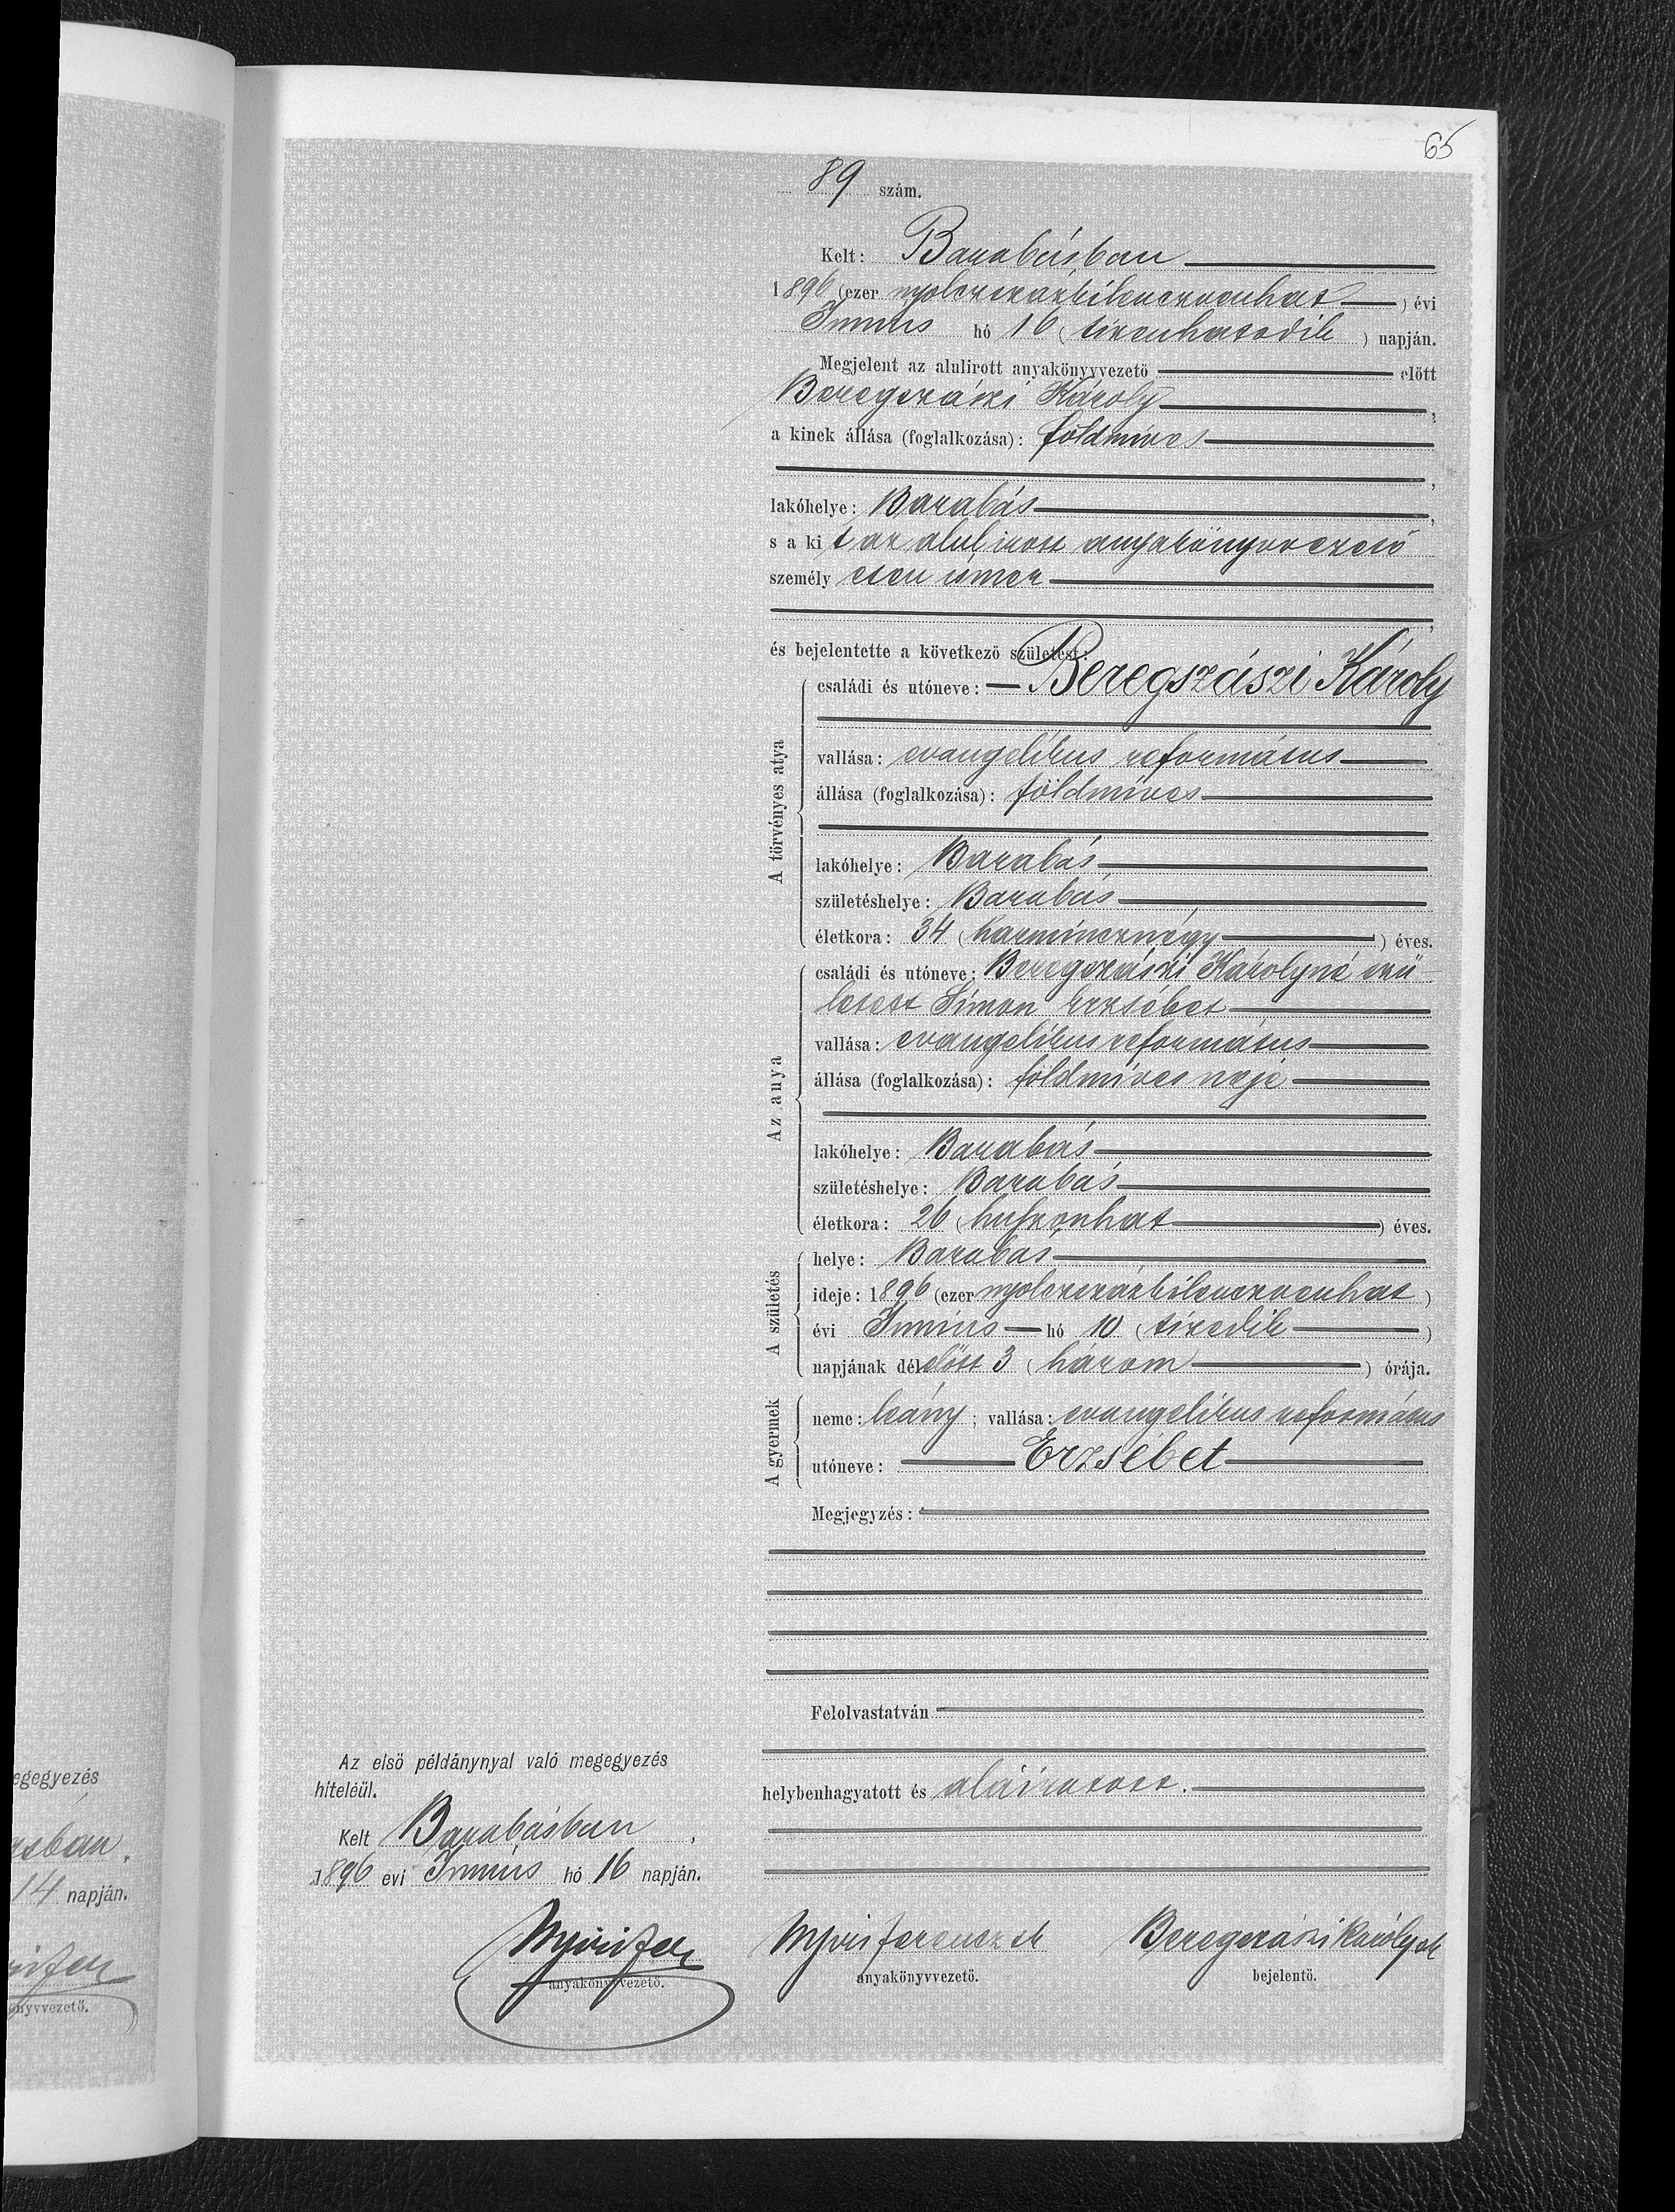 65
89 szám.
Kelt: Barabásban
1896 (ezer nyolczszázkilenczvenhat) évi
Junius hó 16 (tizenhatodik) napján.
Megjelent az alulirott anyakönyvvezető előtt
Beregszászi Károly,
a kinek állása (foglalkozása): földmives
,
lakóhelye: Barabás,
s a kit az alulirott anyakönyvvezető
személyesen ismer
,
és bejelentette a következő születést:
A törvényes atya
családi és utóneve: Beregszászi Károly
vallása: evangelikus református
állása (foglalkozása): földmives
lakóhelye: Barabás
születéshelye: Barabás
életkora: 34 (harmincznégy) éves.
Az anya
családi és utóneve: Beregszászi Károlyné szü
letett Simon Erzsébet
vallása: evangelikus református
állása (foglalkozása): földmives neje
lakóhelye: Barabás
születéshelye: Barabás
életkora: 26 (huszonhat) éves.
A születés
helye: Barabás
ideje: 1896 (ezer nyolczszázkilenczvenhat)
évi Junius hó 10 (tizedik)
napjának délelőtt 3 (három) órája.
A gyermek
neme: leány; vallása: evangelikus református
utóneve: Erzsébet
Megjegyzés:
Felolvastatván
helybenhagyatott és aláiratott.
Az első példánynyal való megegyezés
hiteléül.
Kelt Barabásban,
1896 evi Junius hó 16 napján.
anyakönyvvezető.
Nyiri Ferencz sk
anyakönyvvezető.
Beregszászi Károly sk
bejelentő.
egegyezés
asban,
14 napján.
önyvvezető.